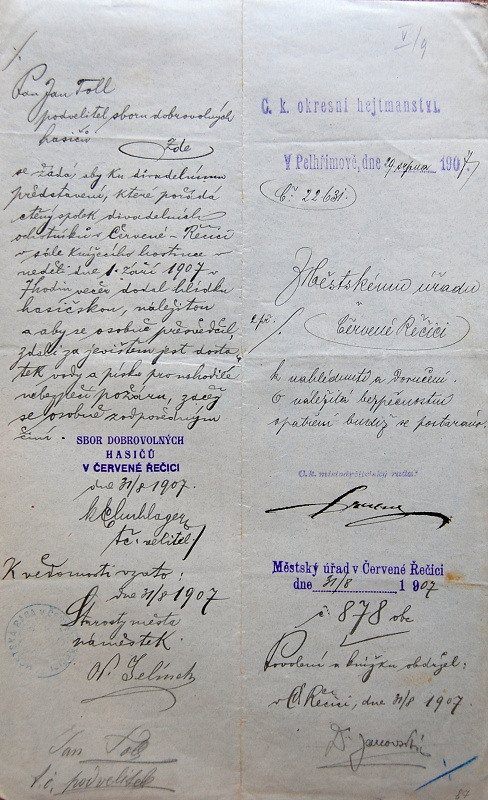 Pan Jan Toll
podvelitel sboru dobrovolných
hasičů
Zde
se žádá, aby ku divadelnímu
představení, které pořádá
ctěný spolek divadelních
ochotníků v Červené-Řečici
v sále knížecího hostince v
neděli dne 1. září 1907 v
7 hodin večer dodal hlídku
hasičskou, náležitou
a aby se osobně přesvědčil,
zdali za jevištěm jest dosta-
tek vody a písku pro
nebezpečí požáru, začež
se osobně zodpovědným
činí.
SBOR DOBROVOLNÝCH
HASIČŮ
V ČERVENÉ ŘEČICI
dne 31/8 1907.
t.č. velitel
K vědomosti vzato:
dne 31/8 1907
Starosty města
náměstek.
Jan Toll
t.č. podvelitel
V/9
C. k. okresní hejtmanství.
V Pelhřimově, dne 29 srpna 1907.
Čís. 22631.
Městskému úřadu
v
Červené Řečici
k nahlédnutí a doručení.
O náležitá bezpečnostní
opatření budiž se postaráno.
C. k. místodržitelský rada:
Městský úřad v Červené Řečici
dne 31/8 1907
č. 878 obc
Povolení a knížku obdržel:
v Č. Řečici, dne 31/8 1907.
87